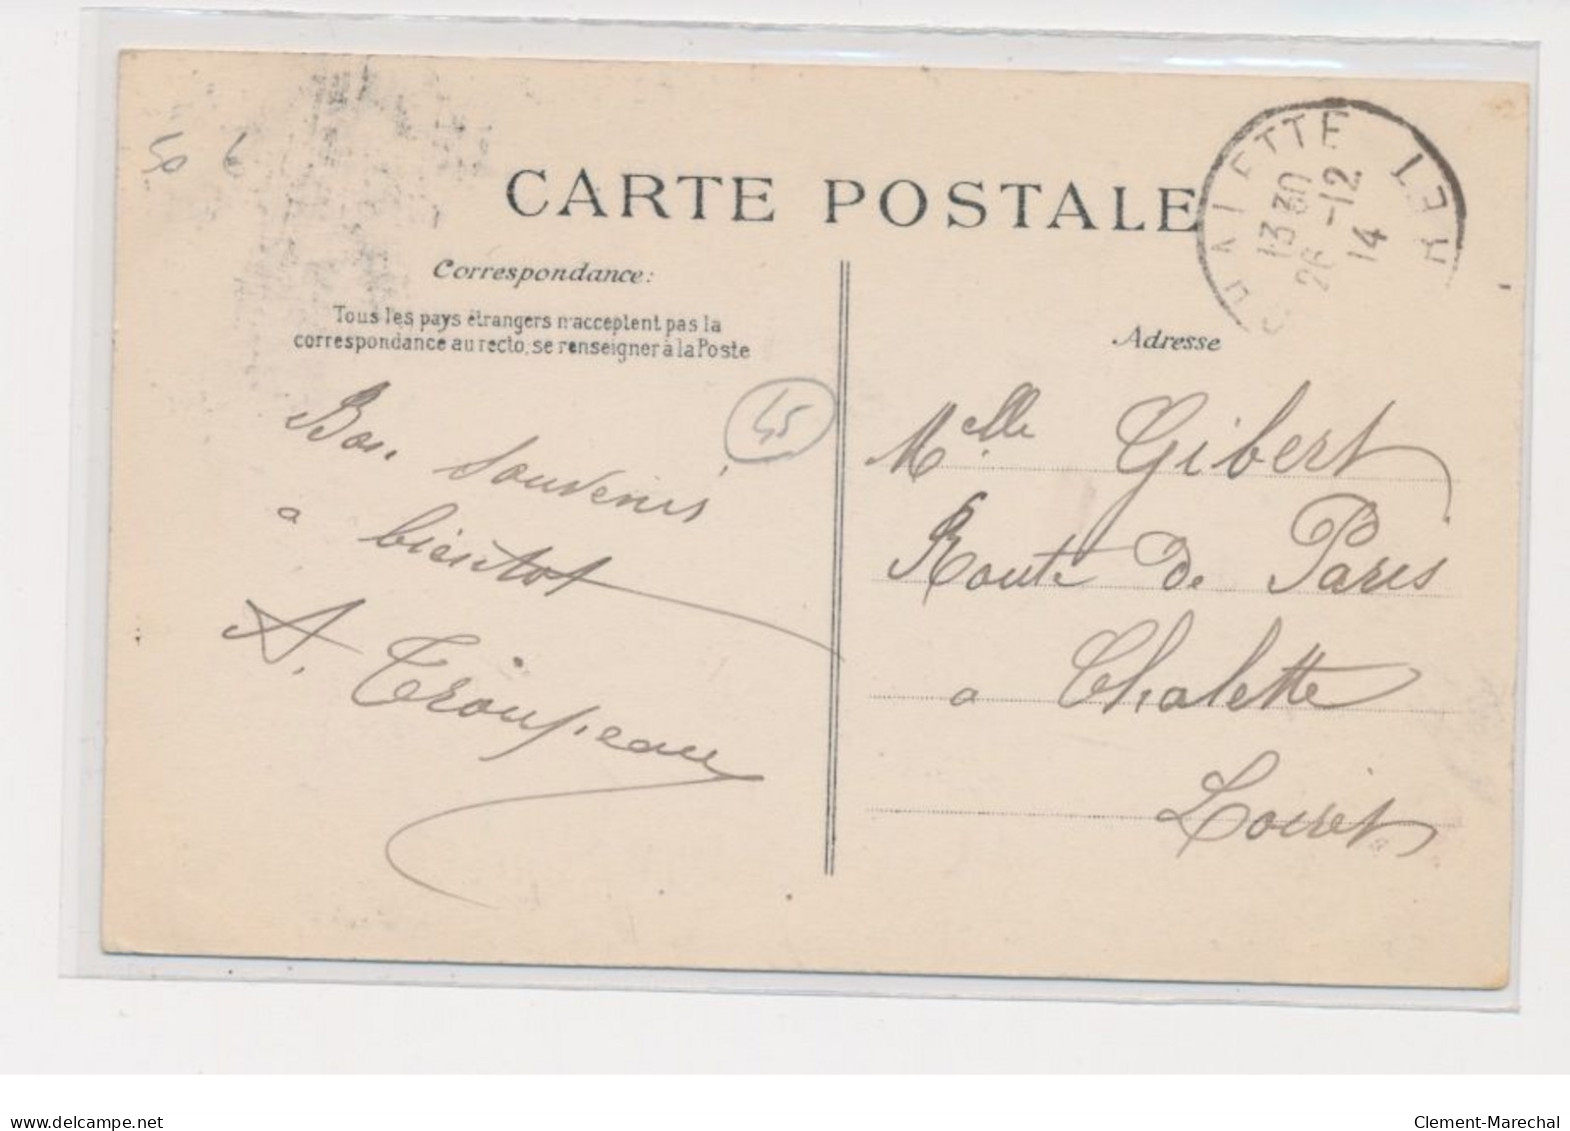 50 €
CARTE POSTALE
Correspondance:
Tous les pays étrangers n'acceptent pas la
correspondance au recto, se renseigner à la Poste
45
Bon souvenir
a bientot
A. Troupeau
CHALETTE
13 30
26 -12
14
Adresse
Melle Gibert
Route de Paris
a Chalette
Loiret
delcampe.net
Clement-Marechal